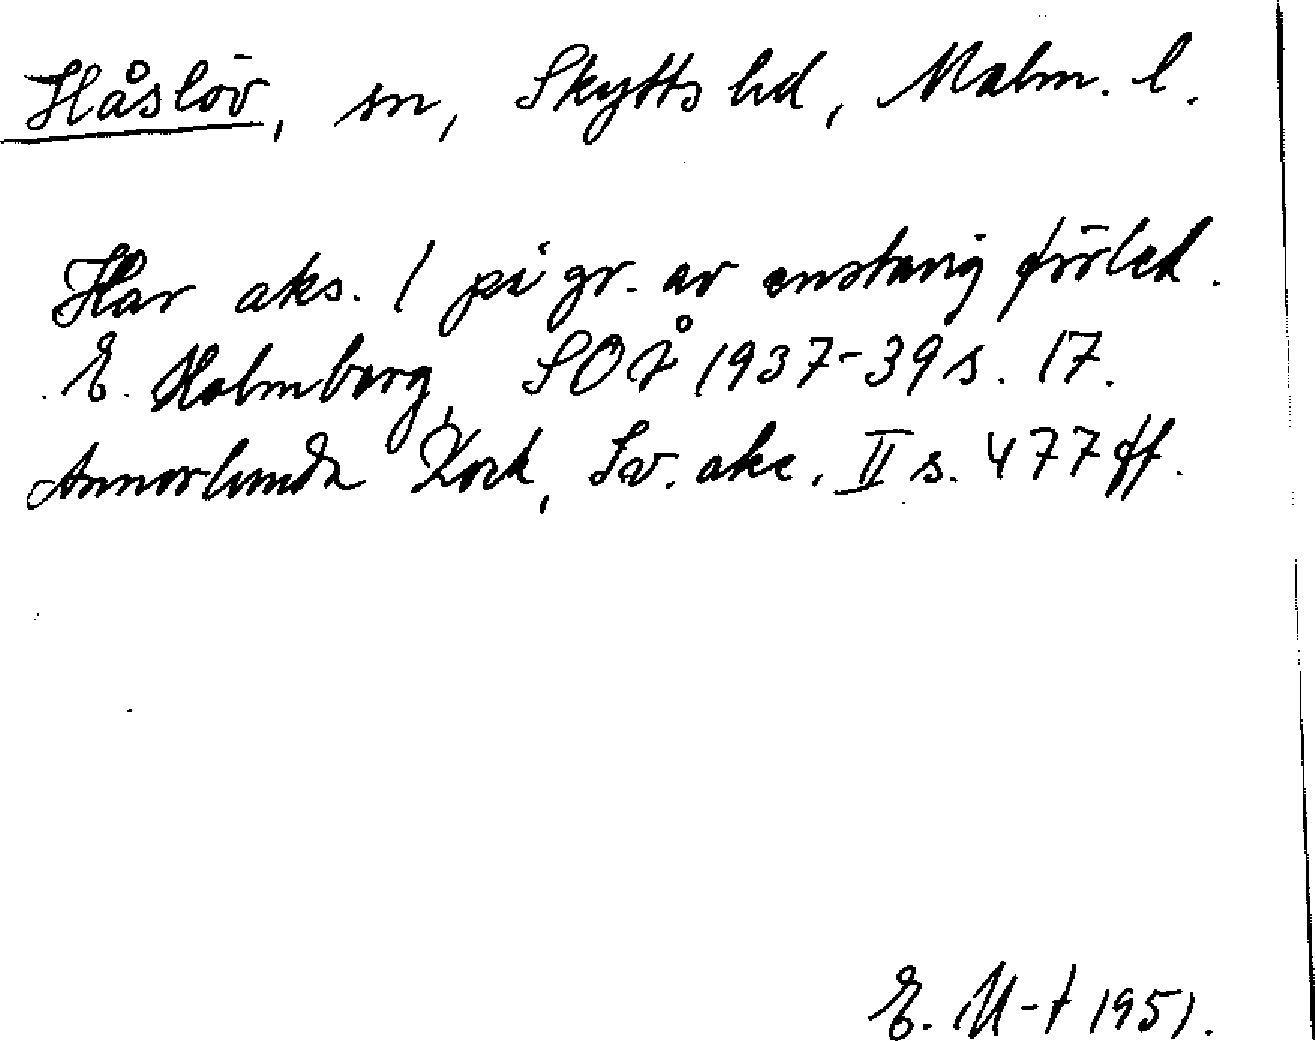 Håslöv, sn, Skytts hd, Malm. l.
Har aks. 1 på gr. av enstavig förled.
E. Holmberg, SOÅ 1937-39 s. 17.
Annorlunda Kock, Sv. akc. II s. 477 ff.
E. M-t 1951.